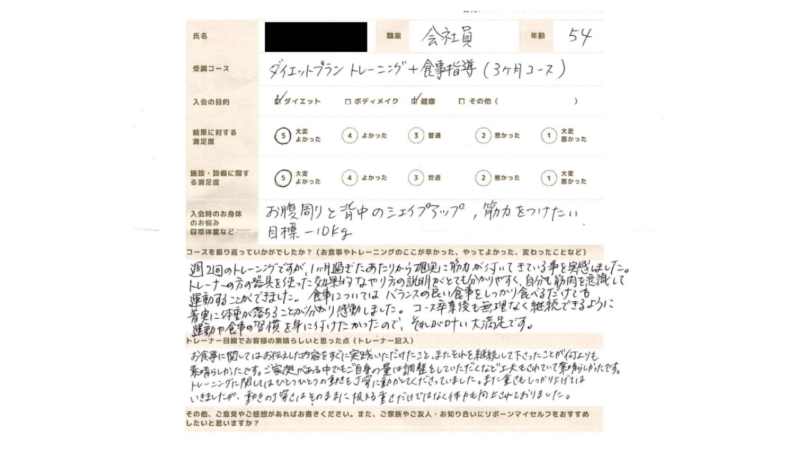 氏名 職業 会社員 年齢 54
受講コース ダイエットプラン トレーニング+食事指導(3ヶ月コース)
入会の目的 ダイエット ボディメイク 健康 その他( )
結果に対する
満足度
5 大変よかった 4 よかった 3 普通 2 悪かった 1 大変悪かった
施設・設備に関する満足度
5 大変よかった 4 よかった 3 普通 2 悪かった 1 大変悪かった
入会時のお身体
のお悩み
目標体重など
お腹周りと背中のシェイプアップ,筋力をつけたい
目標-10kg
コースを振り返っていかがでしたか?(お食事やトレーニングのここが辛かった、やってよかった、変わったことなど)
週2回のトレーニングですが、1ヶ月過ぎたあたりから確実に筋力が付いてきている事を実感しました。
トレーナーの方の器具を使った効果的なやり方の説明がとても分かりやすく、自分も筋肉を意識して
運動することができました。食事については バランスの良い食事をしっかり食べるだけでも
着実に体重が落ちることが分かり感動しました。コース卒業後も無理なく継続できるように
運動や食事の習慣を身に付けたかったので、それが叶い大満足です。
トレーナー目線でお客様の素晴らしいと思った点(トレーナー記入)
お食事に関してはお伝えした内容をすぐに実践いただけたこと、またそれを継続して下さったことが何よりも
素晴らしかったです。ご家族がある中でもご自身の量は調整をしていただくなど工夫もされていて素晴らしかったです。
トレーニングに関してはひとつひとつの動きを丁寧に動かしてくださっていました。また重さもしっかり上げては
いきましたが、動きの丁寧さはそのままに扱える重さだけではなく体力も向上されておりました。
その他、ご意見やご感想があればお書きください。また、ご家族やご友人・お知り合いにリボーンマイセルフをおすすめ
したいと思いますか?